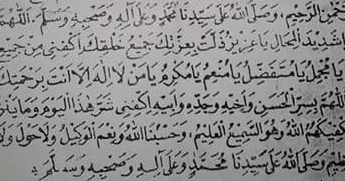 حْمٰنِ الرَّحِيْمِ، وَصَلَّى اللهُ عَلَى سَيِّدِنَا مُحَمَّدٍ وَعَلَى آلِهِ وَصَحْبِهِ وَسَلَّمَ. اللّٰهُمَّ
شَدِيْدَ الْمِحَالِ يَا عَزِيْزُ ذَلَّتْ بِعِزَّتِكَ جَمِيْعُ خَلْقِكَ اِكْفِنِيْ مِنْ جَمِيْعِ
يَا مُجْمِلُ يَا مُتَفَضِّلُ يَا مُنْعِمُ يَا مُكْرِمُ يَا مَنْ لَا اِلٰهَ اِلَّا اَنْتَ بِرَحْمَتِكَ
اللّٰهُمَّ بِسِرِّ الْحَسَنِ وَاَخِيْهِ وَجَدِّهِ وَاَبِيْهِ اِكْفِنِيْ شَرَّ هٰذَا الْيَوْمِ وَمَا يَنْزِلُ
فَسَيَكْفِيْكَهُمُ اللهُ وَهُوَ السَّمِيْعُ الْعَلِيْمُ، وَحَسْبُنَا اللهُ وَنِعْمَ الْوَكِيْلُ وَلَا حَوْلَ وَلَا
عَظِيْمِ وَصَلَّى اللهُ عَلَى سَيِّدِنَا مُحَمَّدٍ وَعَلَى آلِهِ وَصَحْبِهِ وَسَلَّمَ